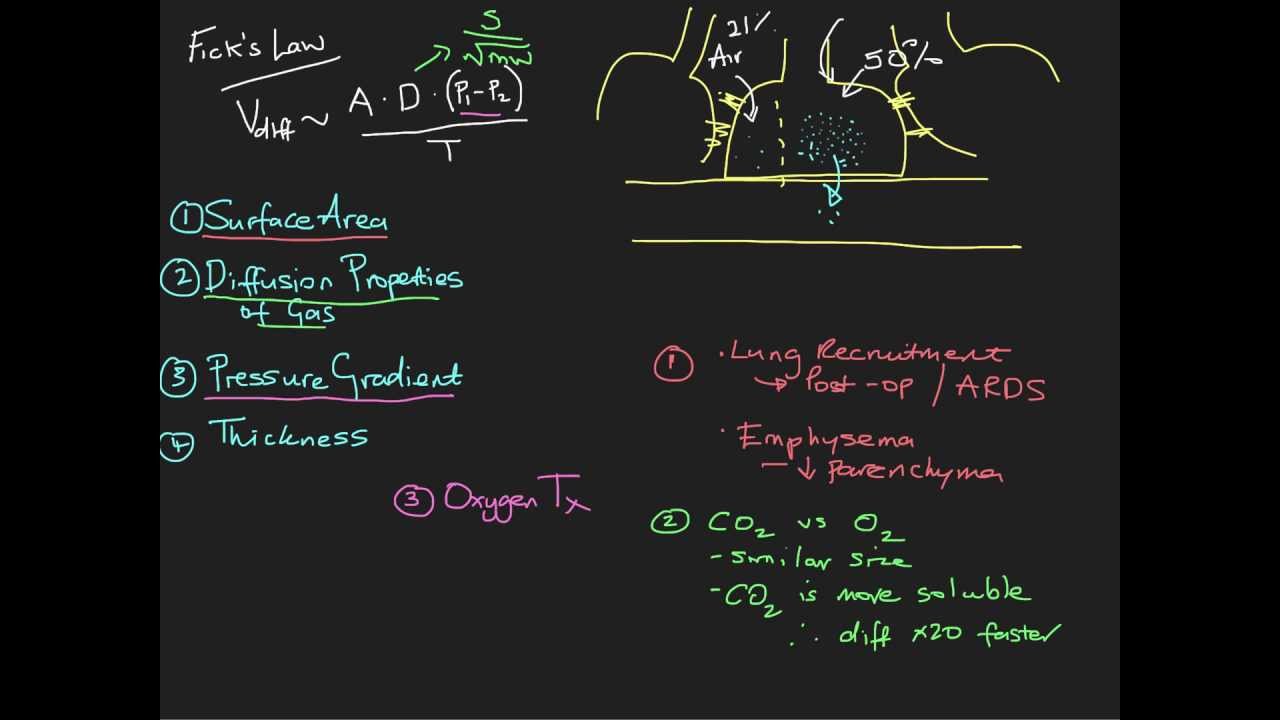 Fick's Law
S
√mw
Vdiff ~ A · D · (P₁ - P₂)
T
① Surface Area
② Diffusion Properties
of Gas
③ Pressure Gradient
④ Thickness
③ Oxygen Tx
21%
Air
50%
① · Lung Recruitment
→ Post-op / ARDS
· Emphysema
- ↓ parenchyma
② CO₂ vs O₂
- similar size
- CO₂ is more soluble
∴ diff x20 faster